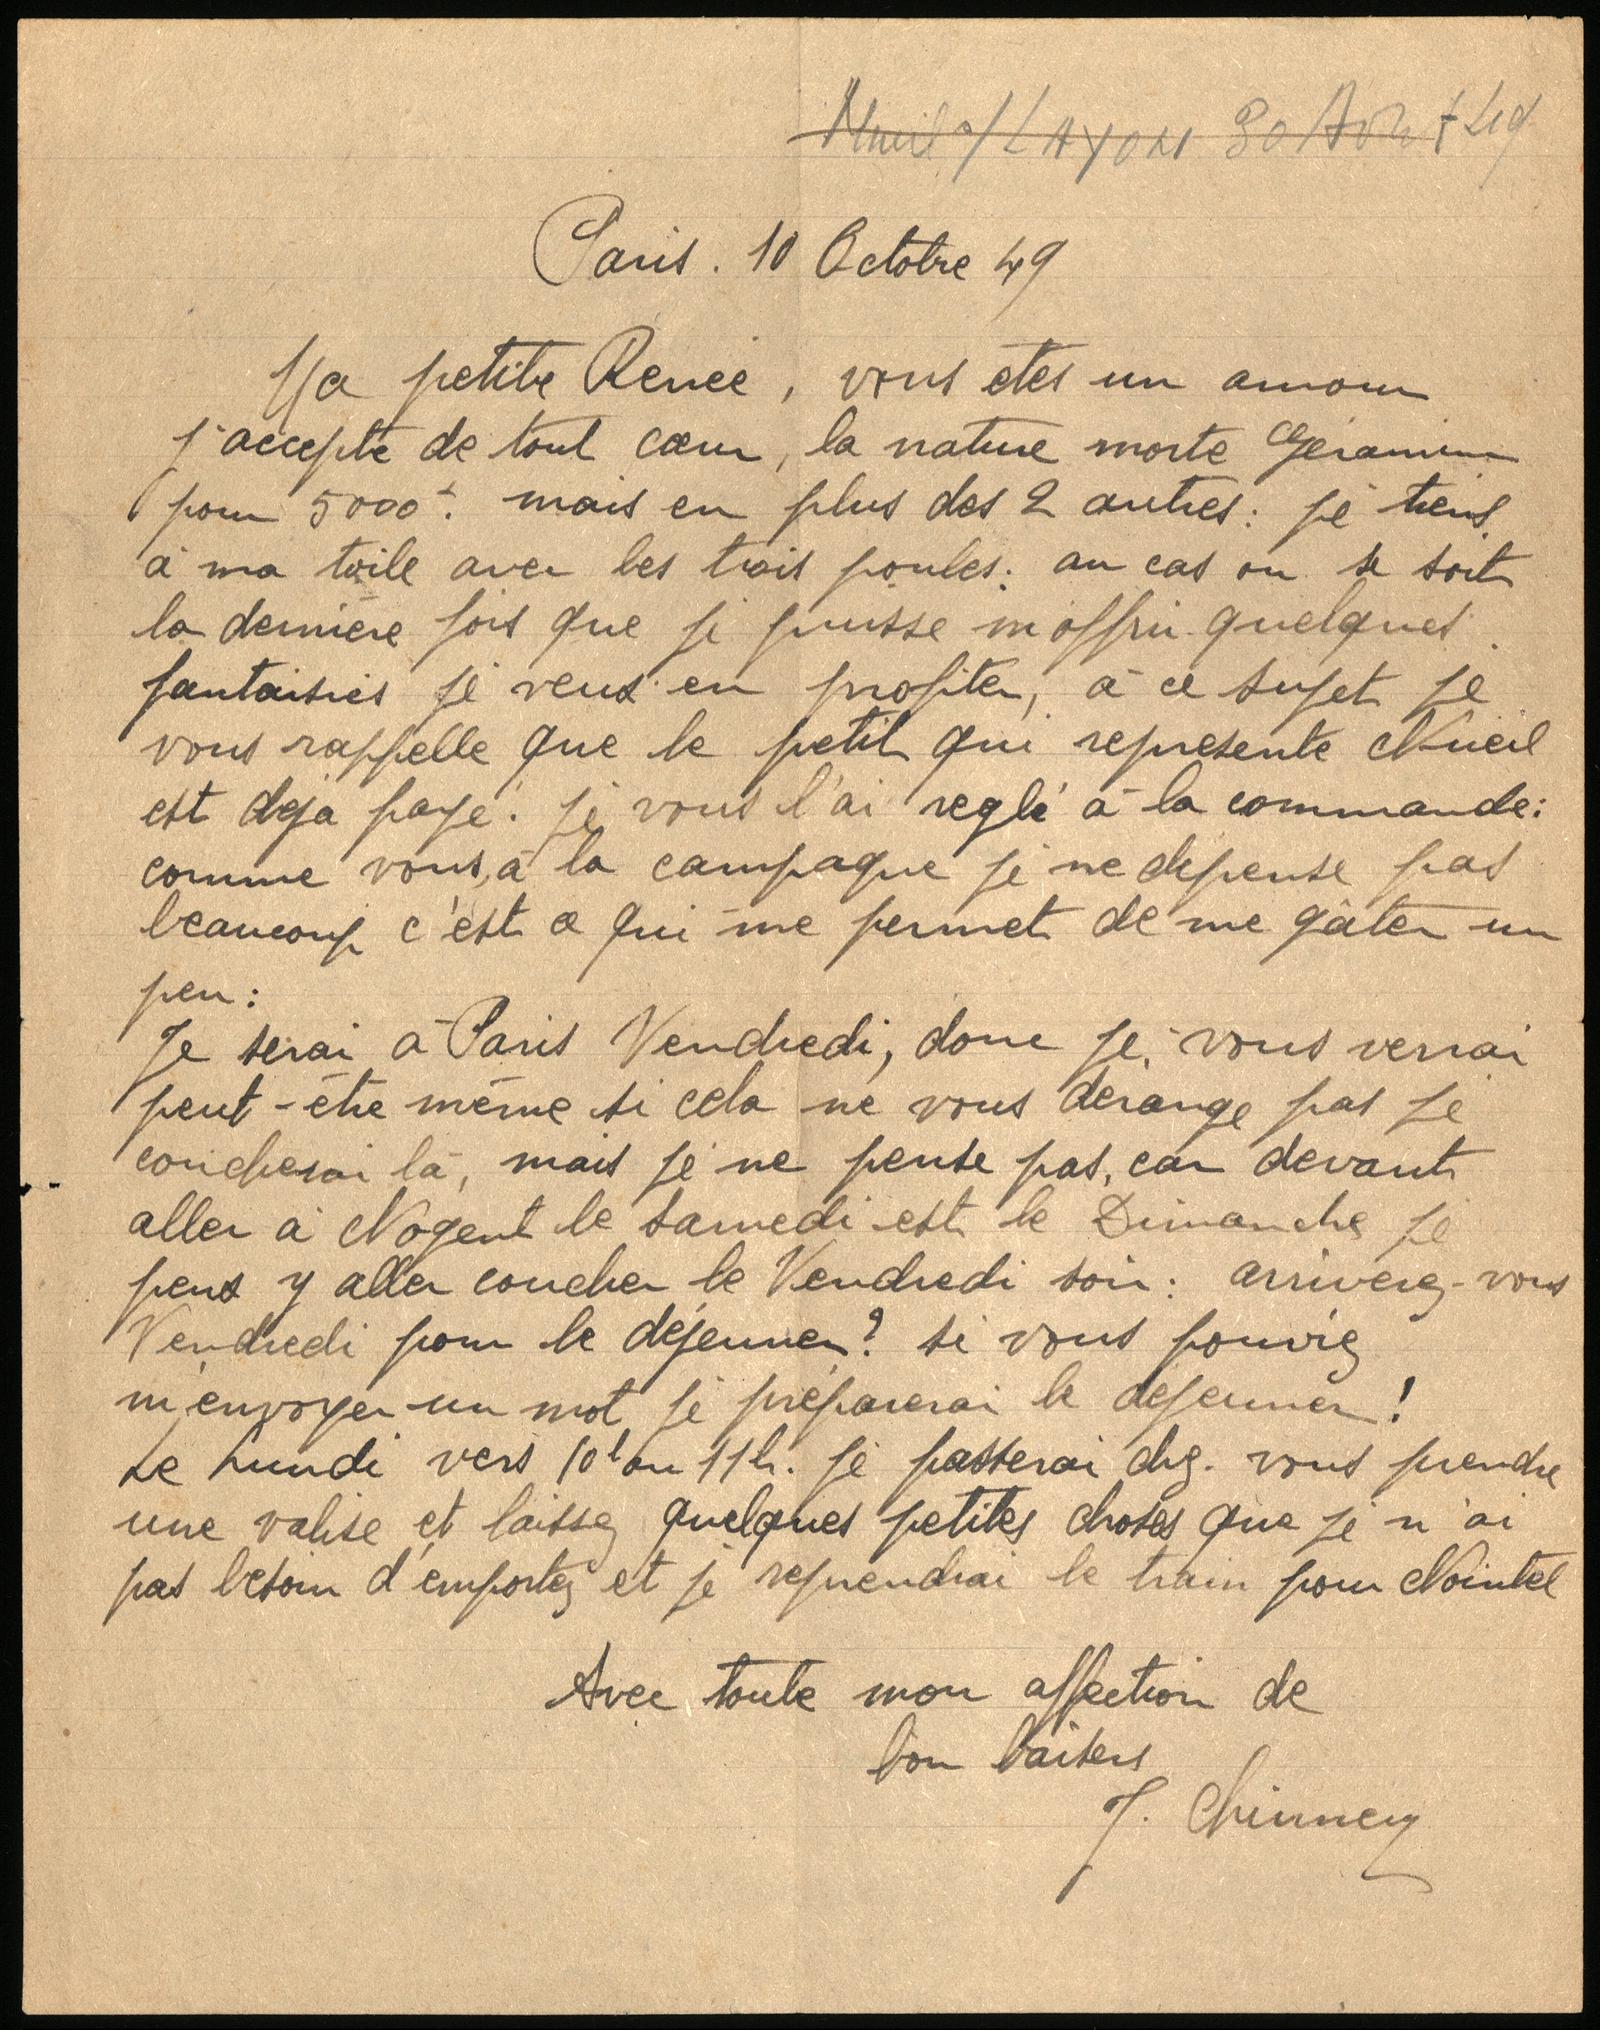 Nueil s/LAYON 30 Août 49
Paris. 10 Octobre 49
Ma petite Renée, vous etes un amour
j'accepte de tout cœur, la nature morte Géranium
pour 5000f. mais en plus des 2 autres: je tiens
à ma toile avec les trois poules. au cas ou se soit
la dernière fois que je puisse m'offrir quelques
fantaisies je veux en profiter, à ce sujet je
vous rappelle que le petit qui represente Nueil
est deja payé. je vous l'ai reglé à la commande:
comme vous, à la campagne je ne depense pas
beaucoup c'est ce qui me permet de me gâter un
peu:
Je serai à Paris Vendredi, donc je vous verrai
peut-être même si cela ne vous dérange pas je
coucherai là, mais je ne pense pas, car devant
aller à Nogent le samedi est le Dimanche je
peux y aller coucher le Vendredi soir: arriverez-vous
Vendredi pour le déjeuner? si vous pouviez
m'envoyer un mot je préparerai le dejeuner!
Le Lundi vers 10h ou 11h. je passerai chz. vous prendre
une valise et laissez quelques petites choses que je n'ai
pas besoin d'emportez et je reprendrai le train pour Nointel
Avec toute mon affection de
bon baisers
J. Chinney